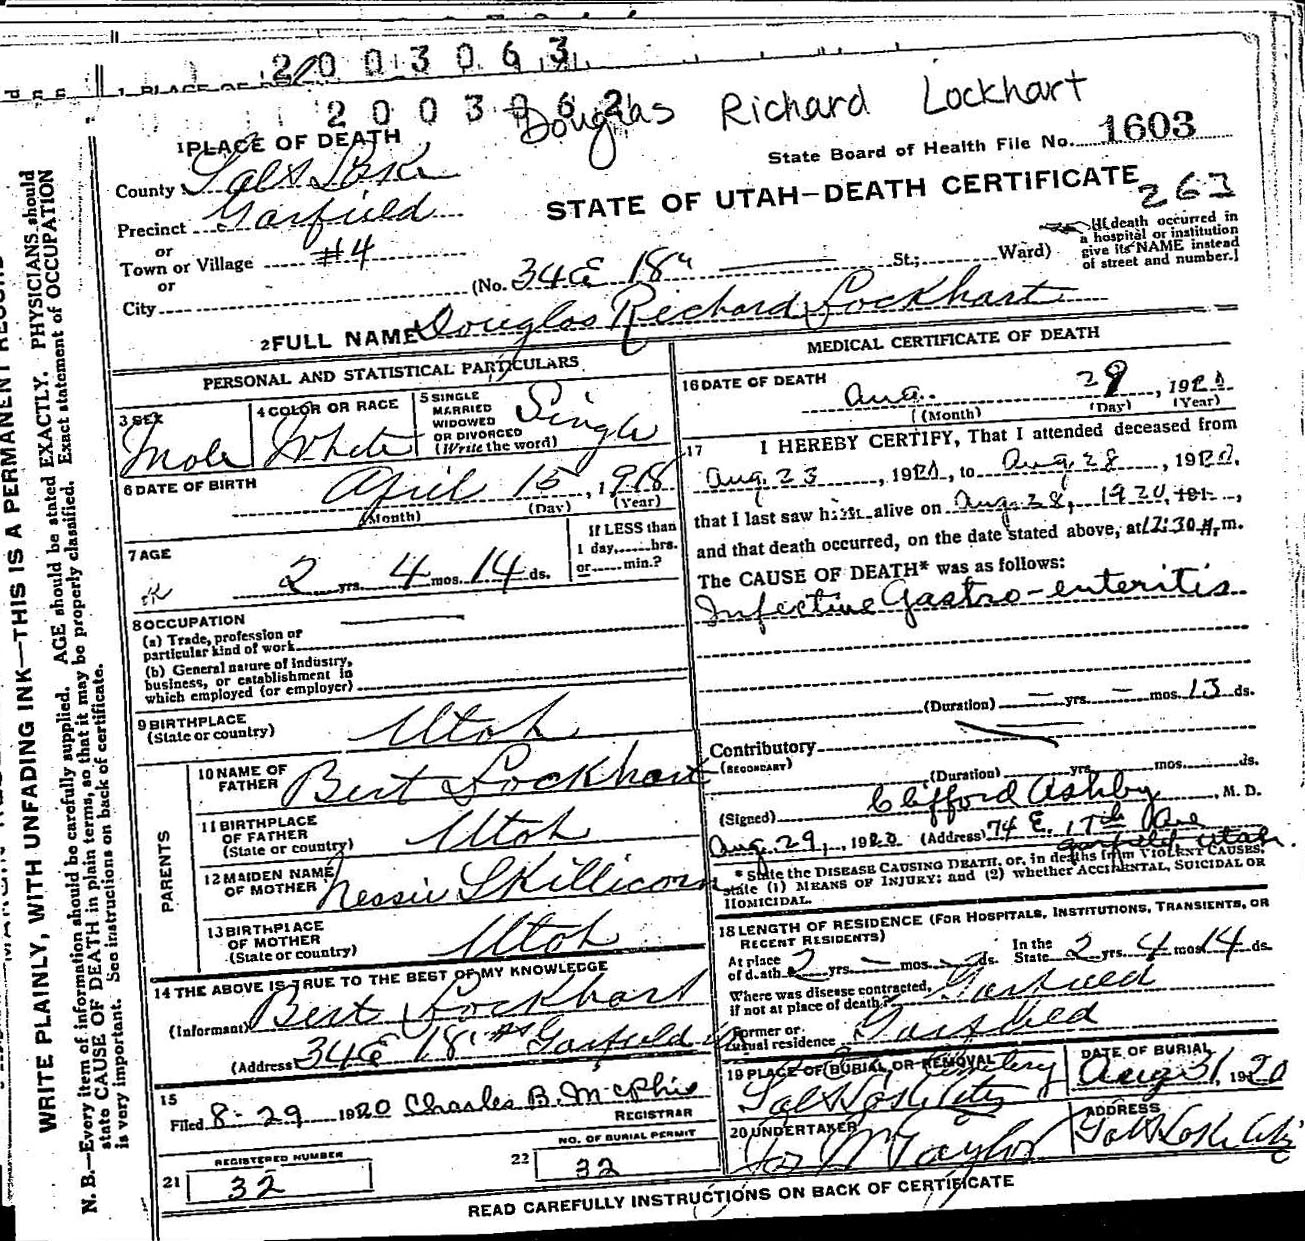 2003063
1 PLACE OF
2003062
Douglas Richard Lockhart
1PLACE OF DEATH
State Board of Health File No. 1603
County Salt Lake
STATE OF UTAH—DEATH CERTIFICATE
263
Precinct Garfield
or
Town or Village #4
or
City
(No. 34 E 18th St.; Ward)
[If death occurred in
a hospital or institution
give its NAME instead
of street and number.]
2FULL NAME Douglas Richard Lockhart
PERSONAL AND STATISTICAL PARTICULARS
3 SEX
Male
4 COLOR OR RACE
White
5 SINGLE
MARRIED
WIDOWED
OR DIVORCED
(Write the word)
Single
6 DATE OF BIRTH
April 15, 1918
(Month) (Day) (Year)
7 AGE
2 yrs. 4 mos. 14 ds.
If LESS than
1 day,......hrs.
or......min.?
8 OCCUPATION
(a) Trade, profession or
particular kind of work
(b) General nature of industry,
business, or establishment in
which employed (or employer)
9 BIRTHPLACE
(State or country)
Utah
PARENTS
10 NAME OF
FATHER
Bert Lockhart
11 BIRTHPLACE
OF FATHER
(State or country)
Utah
12 MAIDEN NAME
OF MOTHER
Nessie Skillicorn
13 BIRTHPLACE
OF MOTHER
(State or country)
Utah
14 THE ABOVE IS TRUE TO THE BEST OF MY KNOWLEDGE
(Informant) Bert Lockhart
(Address) 34 E 18th Garfield
15
Filed 8-29 1920 Charles B. McPhie
REGISTRAR
REGISTERED NUMBER
21 32
NO. OF BURIAL PERMIT
22 32
MEDICAL CERTIFICATE OF DEATH
16 DATE OF DEATH
Aug. 29, 1920
(Month) (Day) (Year)
17 I HEREBY CERTIFY, That I attended deceased from
Aug. 23, 1920, to Aug. 28, 1920,
that I last saw him alive on Aug. 28, 1920, 191 ,
and that death occurred, on the date stated above, at 12:30 A. m.
The CAUSE OF DEATH* was as follows:
Infective Gastro-enteritis
(Duration) — yrs. — mos. 13 ds.
Contributory
(SECONDARY)
(Duration) yrs. mos. ds.
(Signed) Clifford Ashby, M. D.
Aug. 29, 1920 (Address) 74 E. 17th Ave
Garfield Utah.
* State the DISEASE CAUSING DEATH, or, in deaths from VIOLENT CAUSES,
state (1) MEANS OF INJURY; and (2) whether ACCIDENTAL, SUICIDAL OR
HOMICIDAL.
18 LENGTH OF RESIDENCE (FOR HOSPITALS, INSTITUTIONS, TRANSIENTS, OR
RECENT RESIDENTS)
At place
of death 2 yrs. — mos. — ds.
In the
State 2 yrs. 4 mos. 14 ds.
Where was disease contracted,
if not at place of death? Garfield
Former or
usual residence Garfield
19 PLACE OF BURIAL OR REMOVAL
City Cemetery
Salt Lake City
DATE OF BURIAL
Aug 31, 1920
20 UNDERTAKER
Jos Wm Taylor
ADDRESS
Salt Lake City
READ CAREFULLY INSTRUCTIONS ON BACK OF CERTIFICATE
WRITE PLAINLY, WITH UNFADING INK—THIS IS A PERMANENT RECORD
N. B.—Every item of information should be carefully supplied. AGE should be stated EXACTLY. PHYSICIANS should
state CAUSE OF DEATH in plain terms, so that it may be properly classified. Exact statement of OCCUPATION
is very important. See instructions on back of certificate.